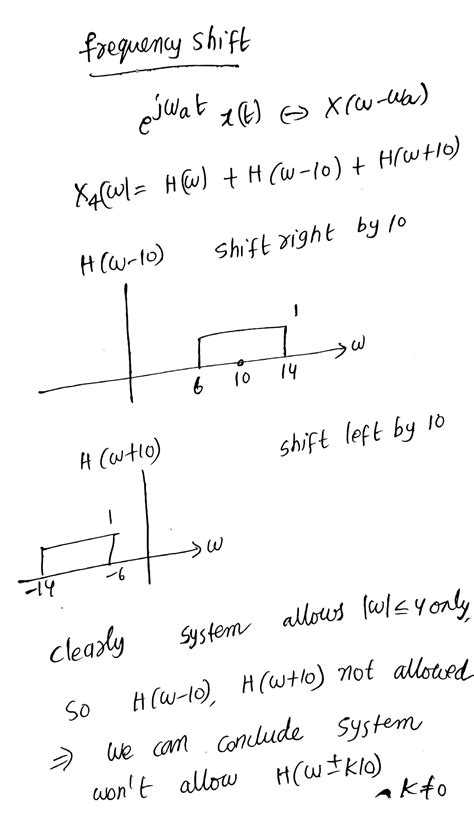 frequency shift
e^jωat x(t) ⇔ X(ω-ωa)
X4(ω)= H(ω) + H(ω-10) + H(ω+10)
H(ω-10) shift right by 10
1
ω
6 10 14
H(ω+10) shift left by 10
1
ω
-14 -6
clearly system allows |ω|≤4 only,
So H(ω-10), H(ω+10) not allowed
⇒ we can conclude system
won't allow H(ω±k10)
k≠0